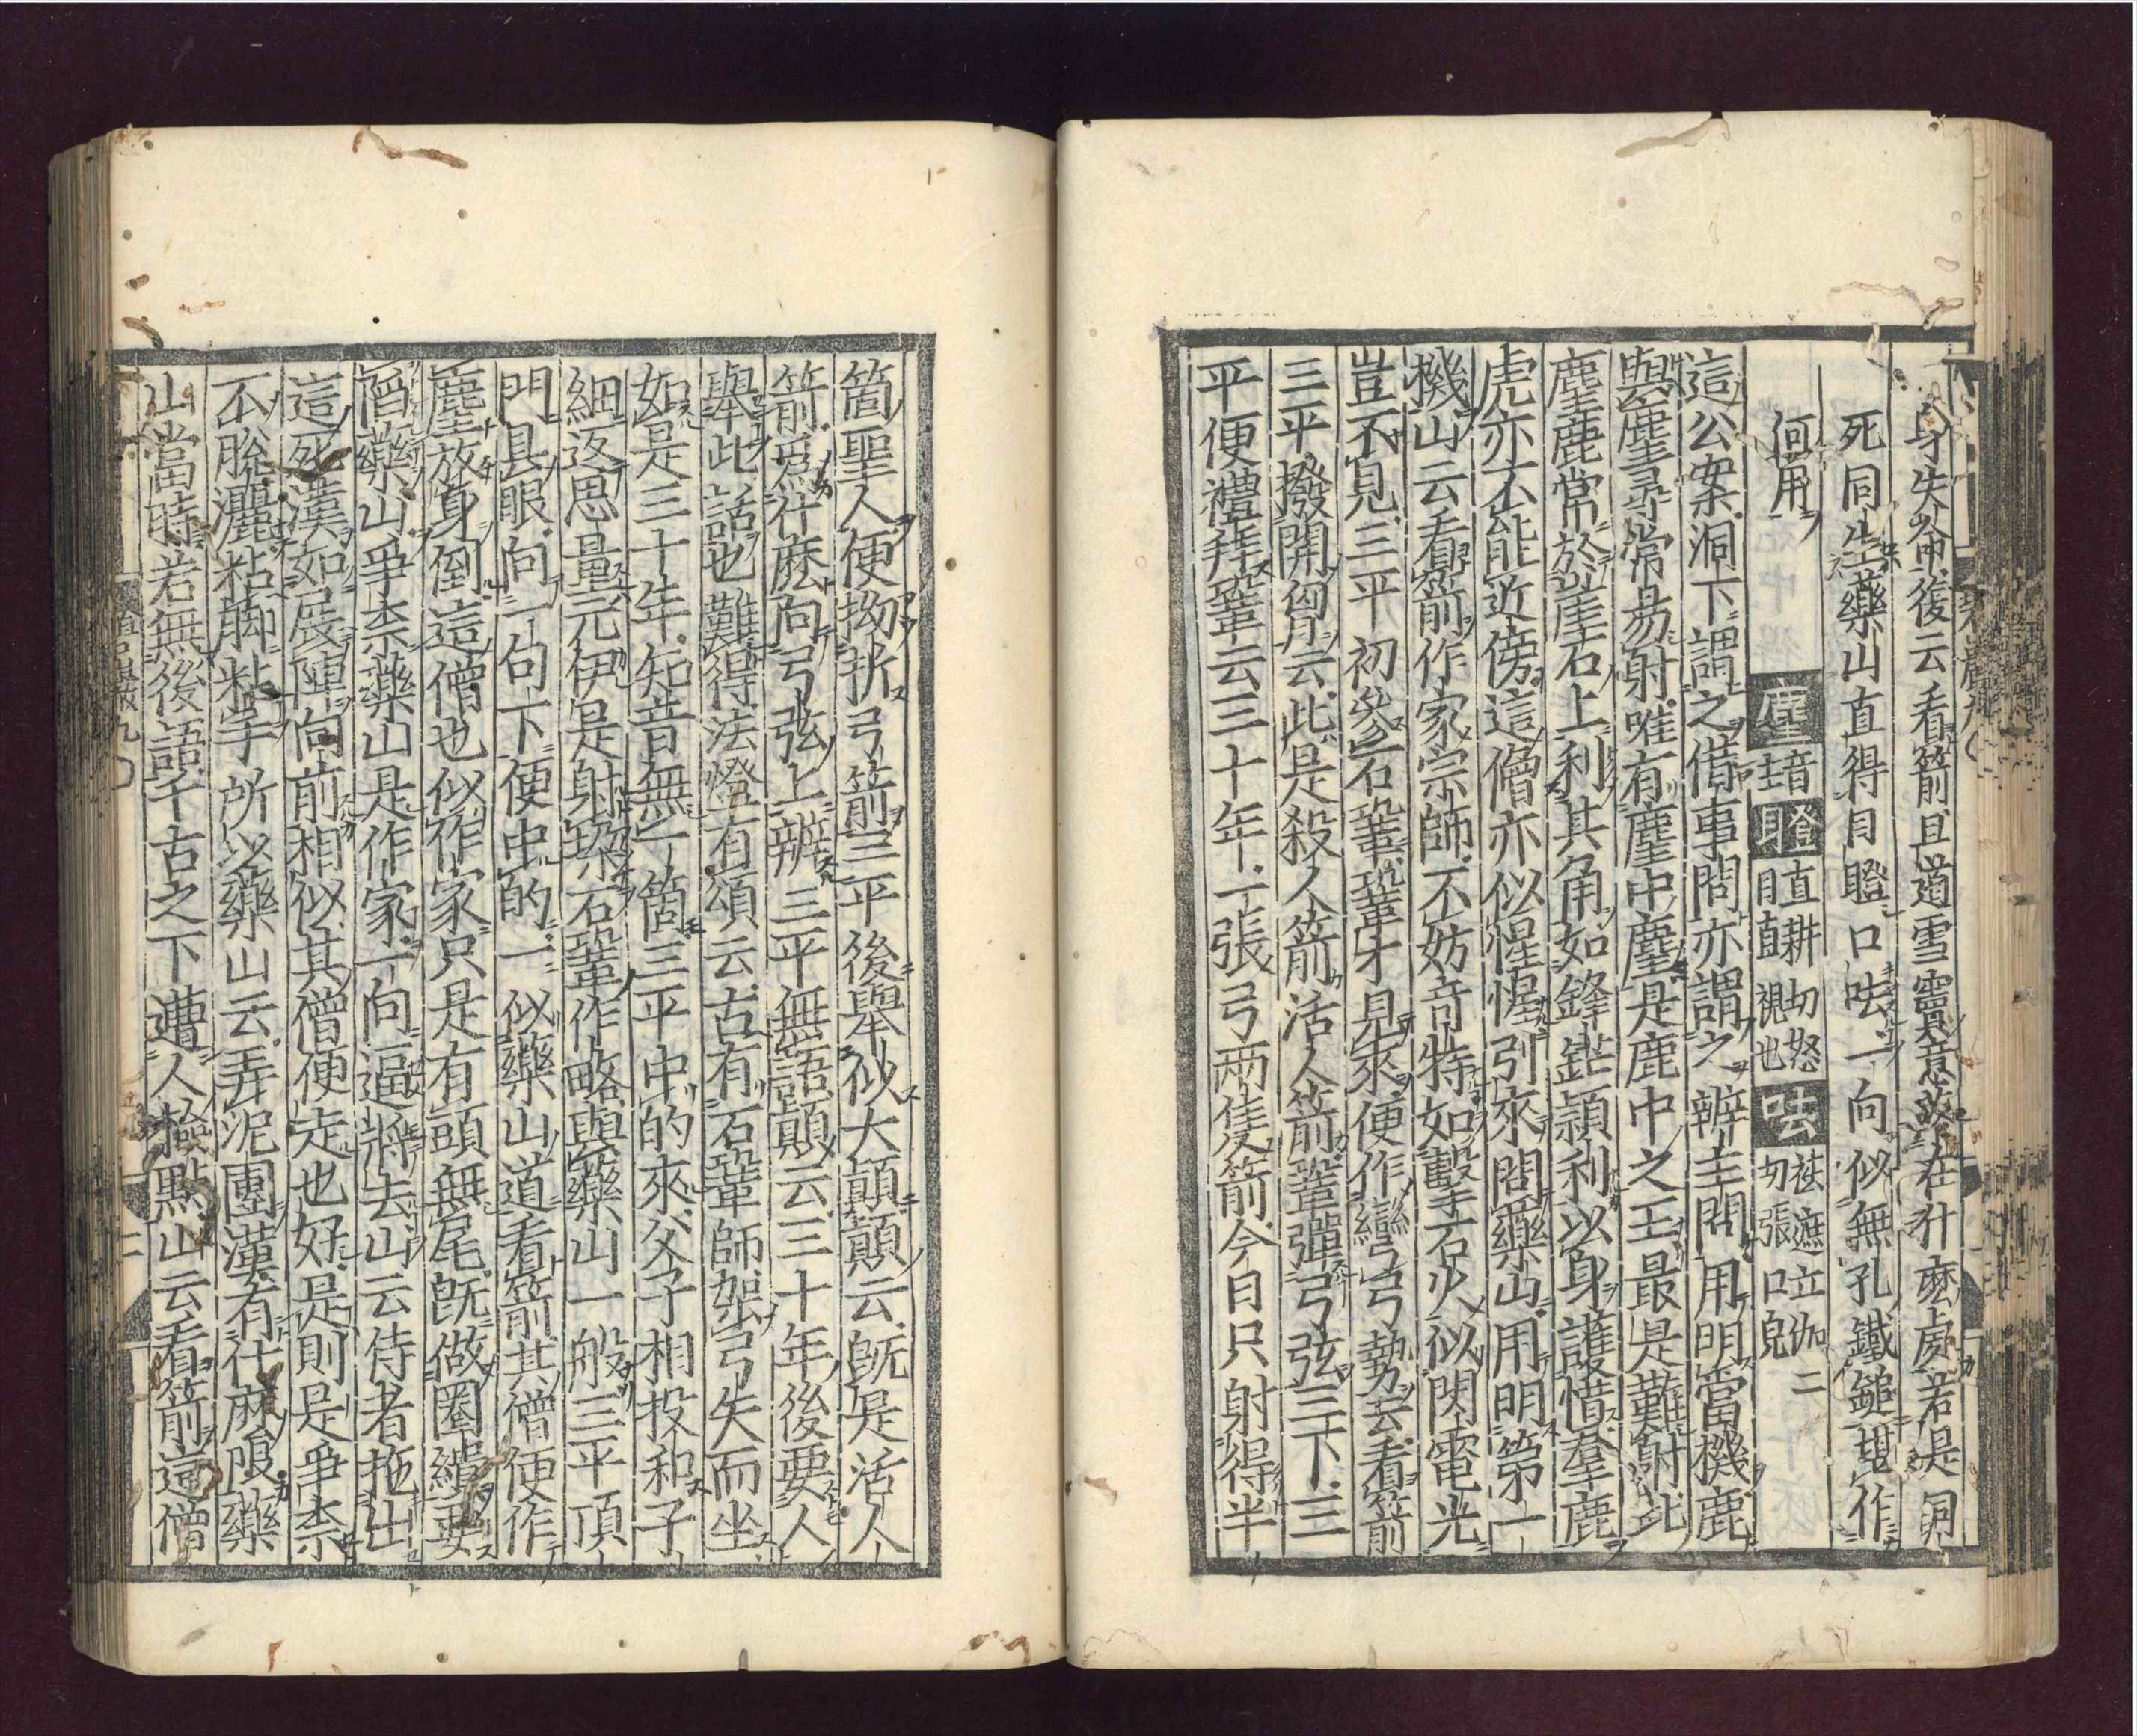 身失命復云看箭且道雪竇意落在什麽處若是同
死同生藥山直得目瞪口呿一向似無孔鐵鎚堪作
何用
麈 音主 瞪 直耕切怒目直視也 呿 袪遮立伽二切張口皃
這公案洞下謂之借事問亦謂之辨主問用明當機鹿
與麈尋常易射唯有麈中麈是鹿中之王最是難射此
麈鹿常於崖石上利其角如鋒鋩頴利以身護惜羣鹿
虎亦不能近傍這僧亦似惺惺引來問藥山用明第一
機山云看箭作家宗師不妨竒特如擊石火似閃電光
豈不見三平初參石鞏鞏才見來便作彎弓勢云看箭
三平撥開胷云此是殺人箭活人箭鞏彈弓弦三下三
平便禮拜鞏云三十年一張弓兩隻箭今日只射得半
箇聖人便拗折弓箭三平後舉似大顛顛云旣是活人
箭爲什麽向弓弦上辨三平無語顛云三十年後要人
舉此話也難得法燈有頌云古有石鞏師架弓矢而坐
如是三十年知音無一箇三平中的來父子相投和子
細返思量元伊是射垜石鞏作略與藥山一般三平頂
門具眼向一句下便中的一似藥山道看箭其僧便作
麈放身倒這僧也似作家只是有頭無尾旣做圈繢要
陷藥山爭柰藥山是作家一向逼將去山云侍者拖出
這死漢如展陣向前相似其僧便走也好是則是爭柰
不脫灑粘脚粘手所以藥山云弄泥團漢有什麽限藥
山當時若無後語千古之下遭人撿點山云看箭這僧